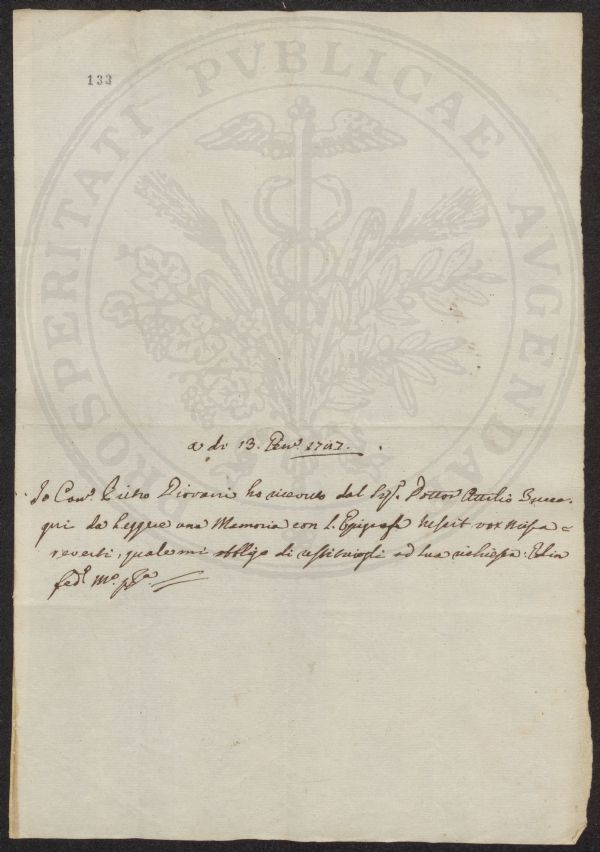 133
PROSPERITATI PVBLICAE AVGENDAE
a dì 13. 1747.
Io Can.º Pietro ho ricevuto dal Sig.r Dottor Attilio Zucca=
gni da leggere una Memoria con l'Epigrafe Nescit vox missa
reverti, quale mi obbligo di restituirgli ad sua richiesta. Ed in
fede M.º pp.ª